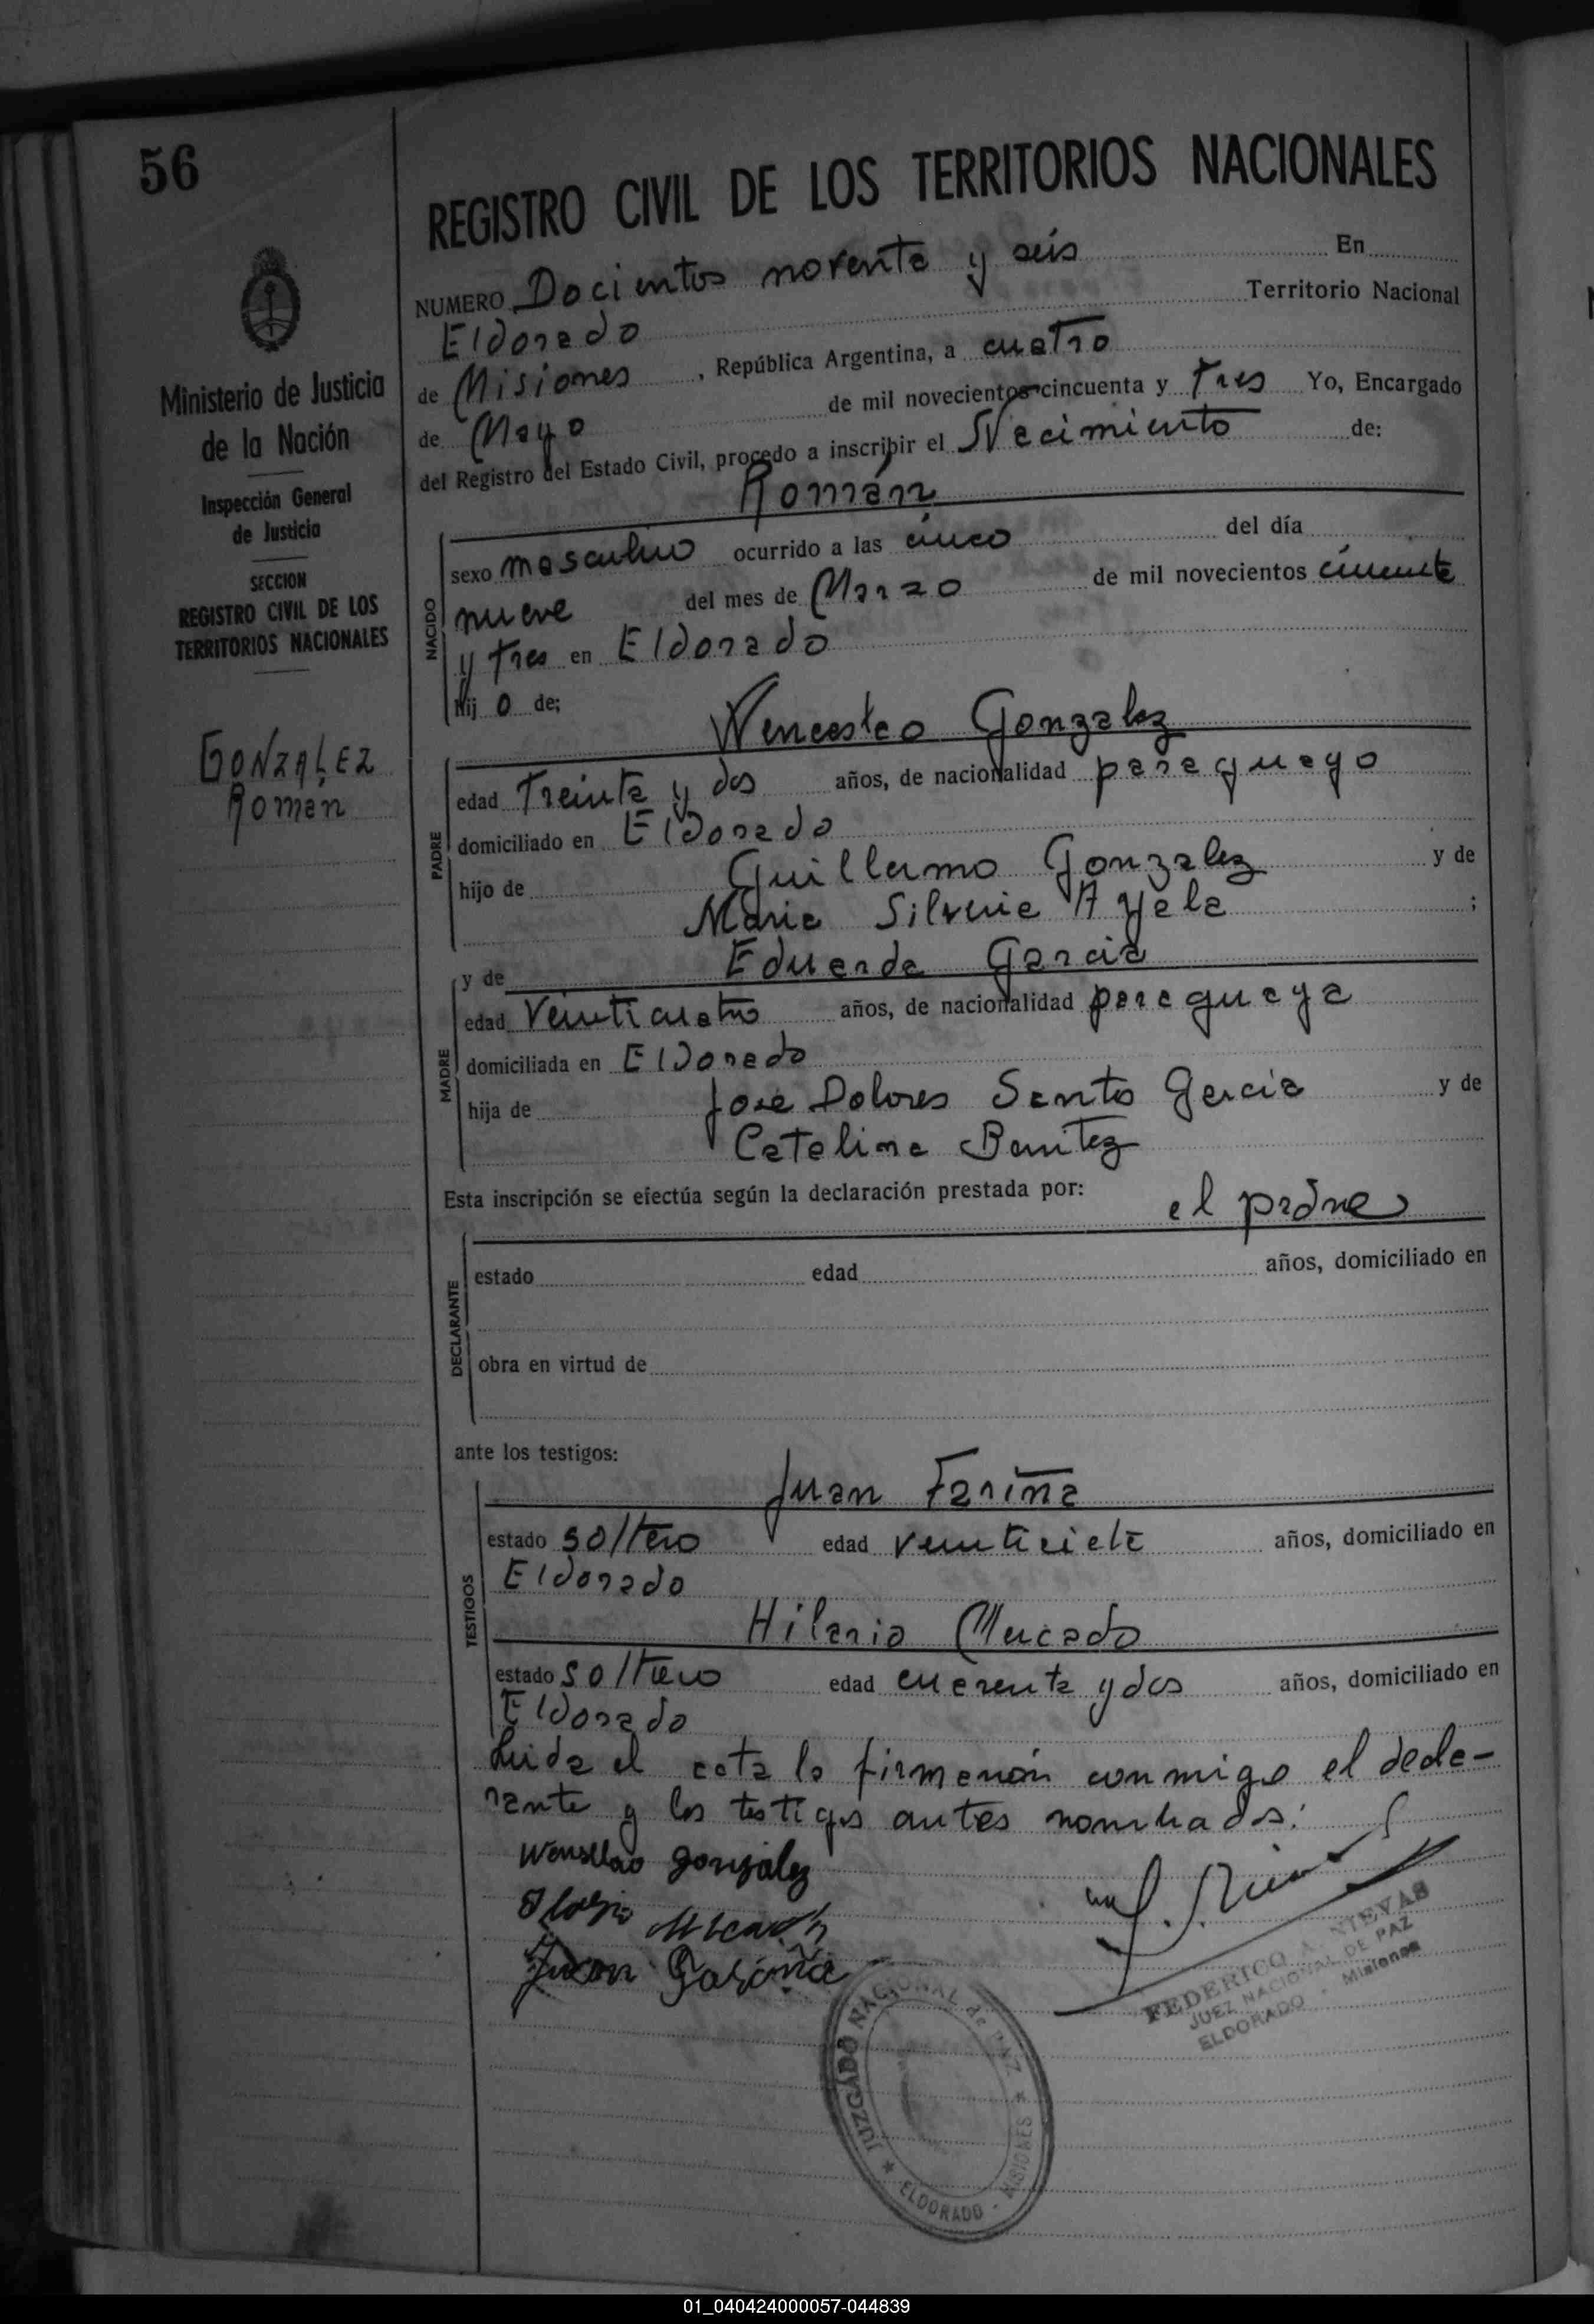 56
REGISTRO CIVIL DE LOS TERRITORIOS NACIONALES
Ministerio de Justicia
de la Nación
Inspección General
de Justicia
SECCION
REGISTRO CIVIL DE LOS
TERRITORIOS NACIONALES
GONZALEZ
Roman
NUMERO Docientos noventa y seis En
Eldorado Territorio Nacional
de Misiones, República Argentina, a cuatro
de Mayo de mil novecientos cincuenta y tres Yo, Encargado
del Registro del Estado Civil, procedo a inscribir el Nacimiento de:
Román
NACIDO
sexo masculino ocurrido a las cinco del día
nueve del mes de Marzo de mil novecientos cincuenta
y tres en Eldorado
hij o de;
Wenceslao Gonzalez
PADRE
edad Treinta y dos años, de nacionalidad paraguayo
domiciliado en Eldorado
hijo de Guillermo Gonzalez y de
Maria Silveria Ayala ;
y de Eduarda Garcia
MADRE
edad Veinticuatro años, de nacionalidad paraguaya
domiciliada en Eldorado
hija de José Dolores Santos Garcia y de
Catalina Benitez
Esta inscripción se efectúa según la declaración prestada por: el padre
DECLARANTE
estado edad años, domiciliado en
obra en virtud de
ante los testigos:
Juan Fariña
TESTIGOS
estado soltero edad veinticiete años, domiciliado en
Eldorado
Hilario Mercado
estado soltero edad cuarenta y dos años, domiciliado en
Eldorado
Leida el acta la firmarón conmigo el decla-
rante y los testigos antes nombrados:
Wenseslao gonzalez
Juan Fariña
FEDERICO A. NIEVAS
JUEZ NACIONAL DE PAZ
ELDORADO - Misiones
JUZGADO NACIONAL de PAZ
ELDORADO - MISIONES
01_040424000057-044839